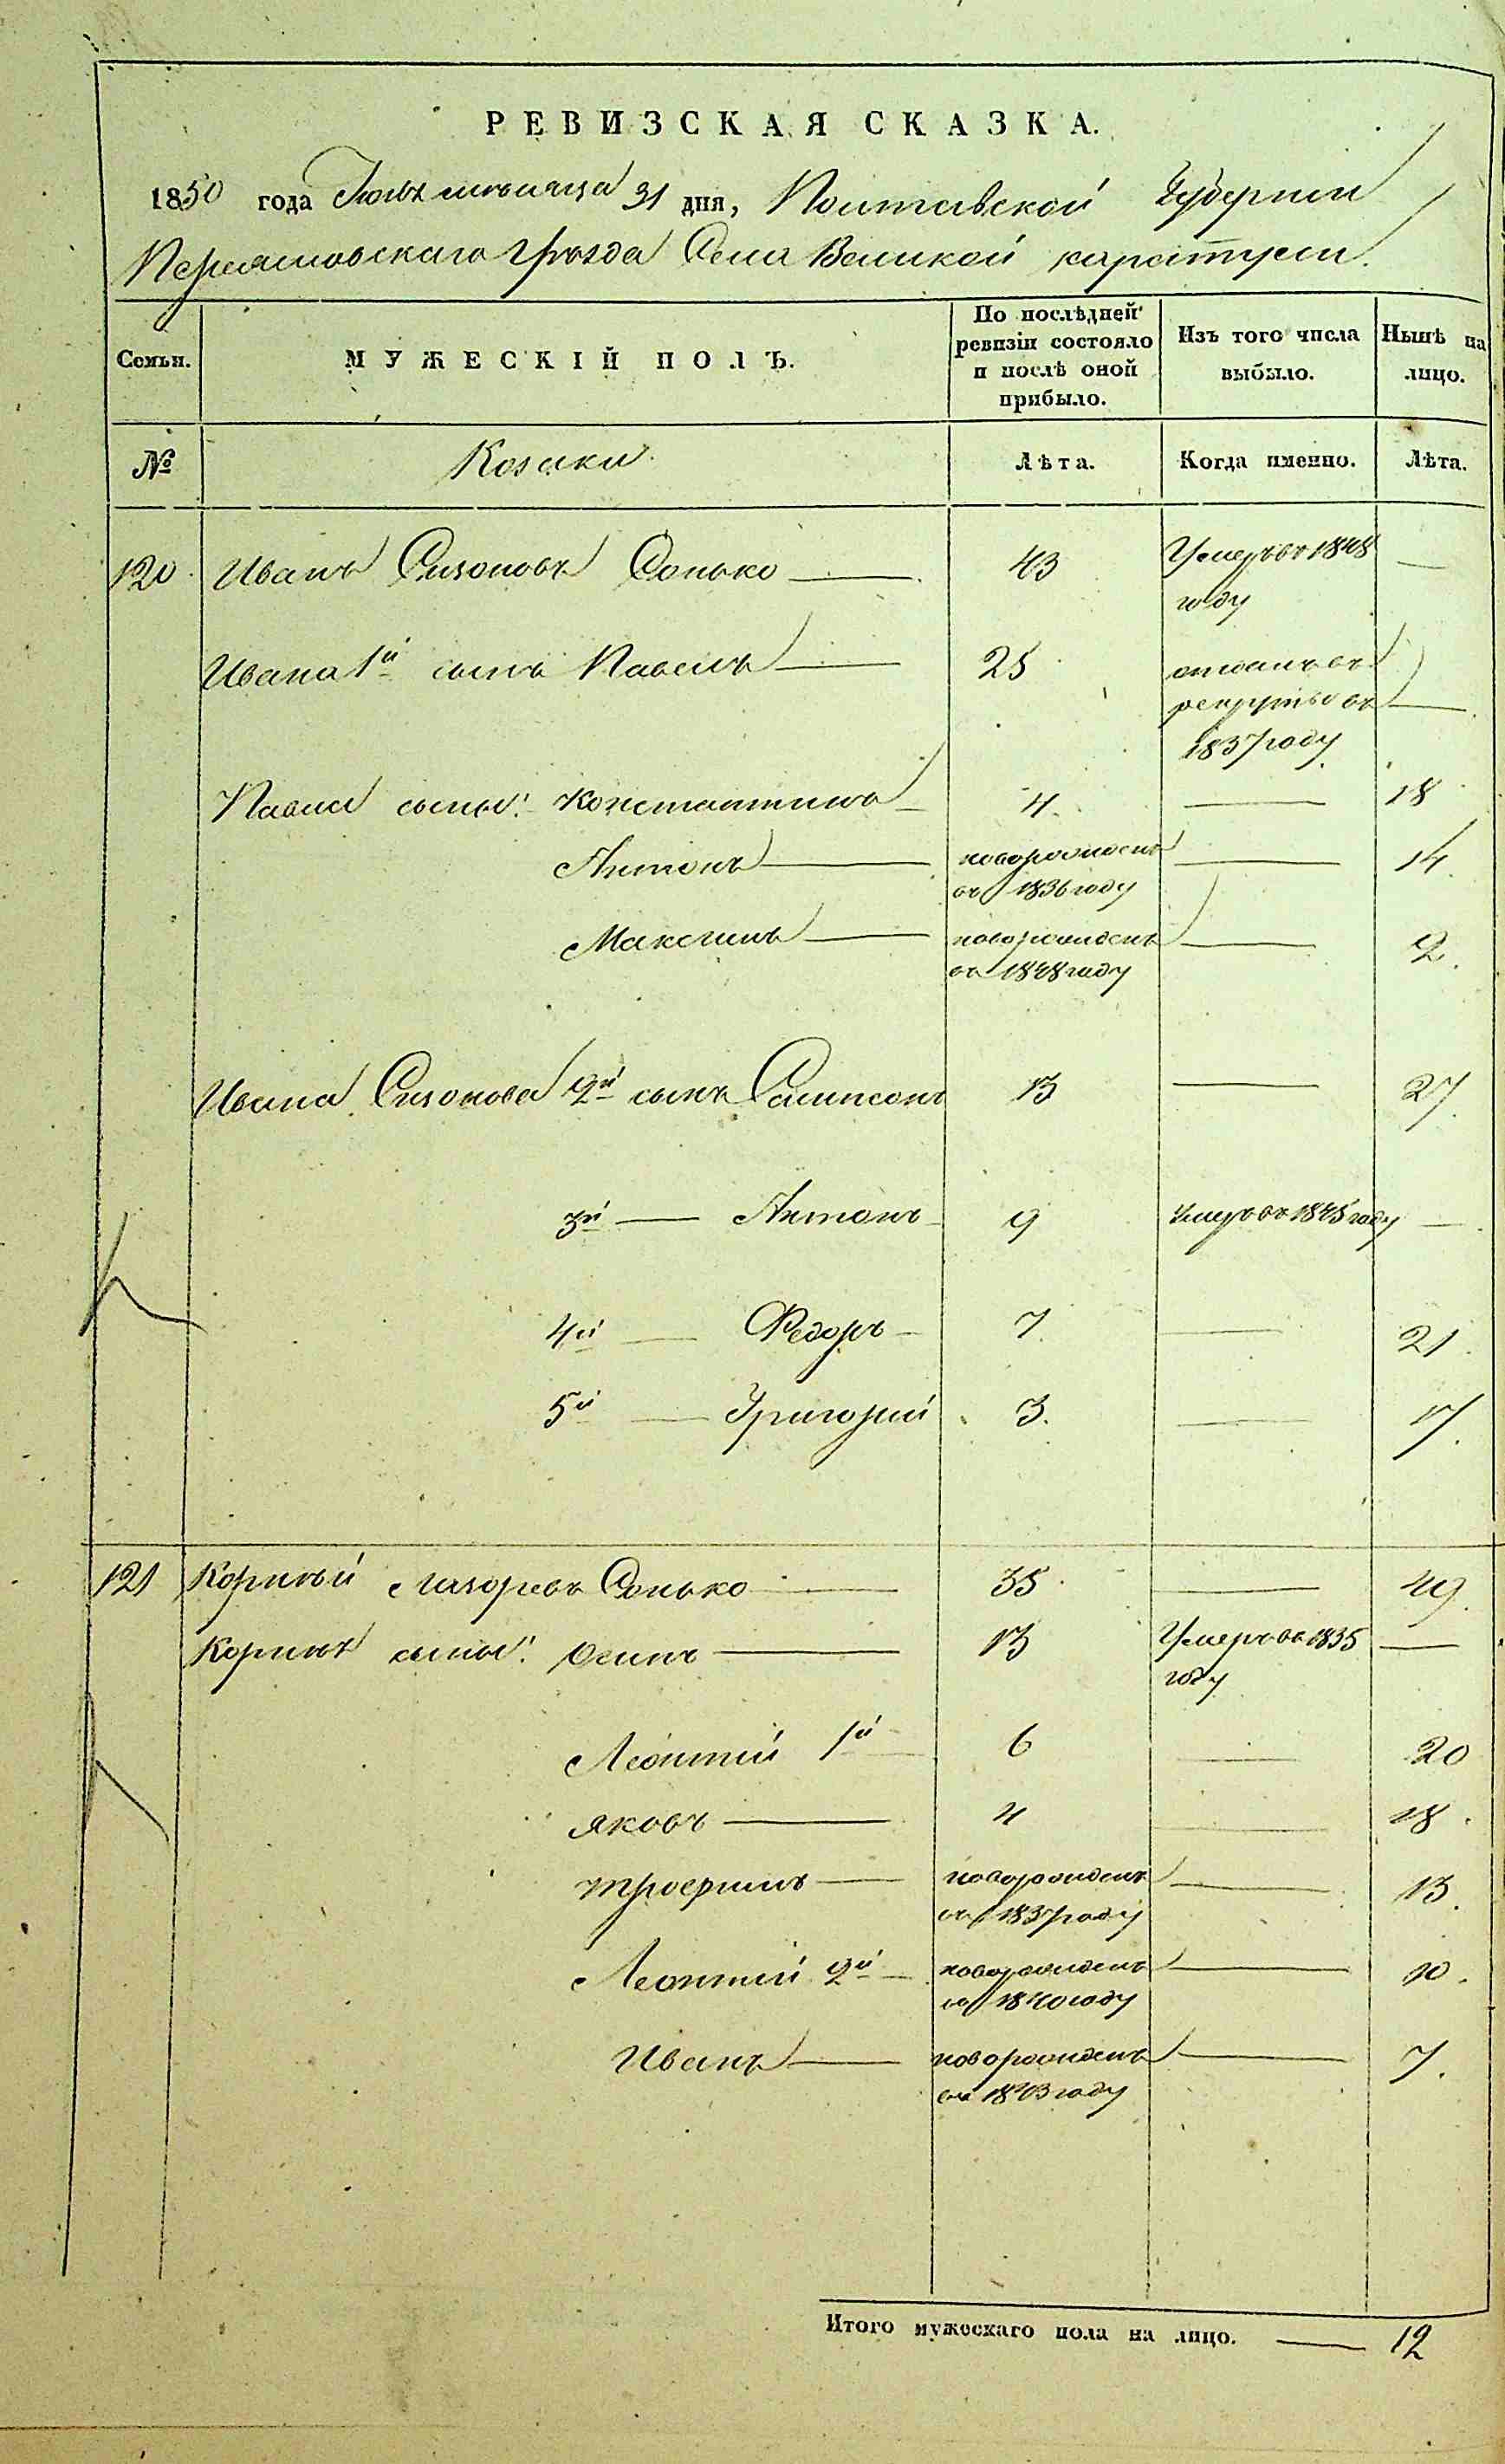 РЕВИЗСКАЯ СКАЗКА.
1850 года Іюля мѣсяца 31 дня, Полтавской Губерніи
Переяславскаго Уѣзда Села Великой каратули.
Семьи.
МУЖЕСКІЙ ПОЛЪ.
По послѣдней
ревизіи состояло
и послѣ оной
прибыло.
Изъ того числа
выбыло.
Нынѣ на
лицо.
№
Козаки
Лѣта.
Когда именно.
Лѣта.
120 Иванъ Сизоновъ Сонько — 43 Умеръ въ 1848 —
году
Ивана 1й сынъ Павелъ — 25 отданъ въ
рекруты въ —
1837 году
Павла сыны: Константинъ 4. — 18
Антонъ — новорожденъ — 14.
въ 1836 году
Максимъ — новорожденъ — 2.
въ 1848 году
Ивана Сизонова 2й сынъ Сампсонъ 13 — 27.
3й — Антонъ 9 умеръ въ 1845 году —
4й — Федоръ 7 — 21.
5й — Григорій 3. — 17.
121 Корнѣй Лазоревъ Сонько — 35 — 49.
Корнѣя сыны: Осипъ — 13 Умеръ въ 1835 —
году
Леонтій 1й 6 — 20
яковъ — 4 — 18.
трофимъ — новорожденъ — 13.
въ 1837 году
Леонтій 2й — новорожденъ — 10.
въ 1840 году
Иванъ — новорожденъ — 7.
въ 1843 году
Итого мужескаго пола на лицо. — 12